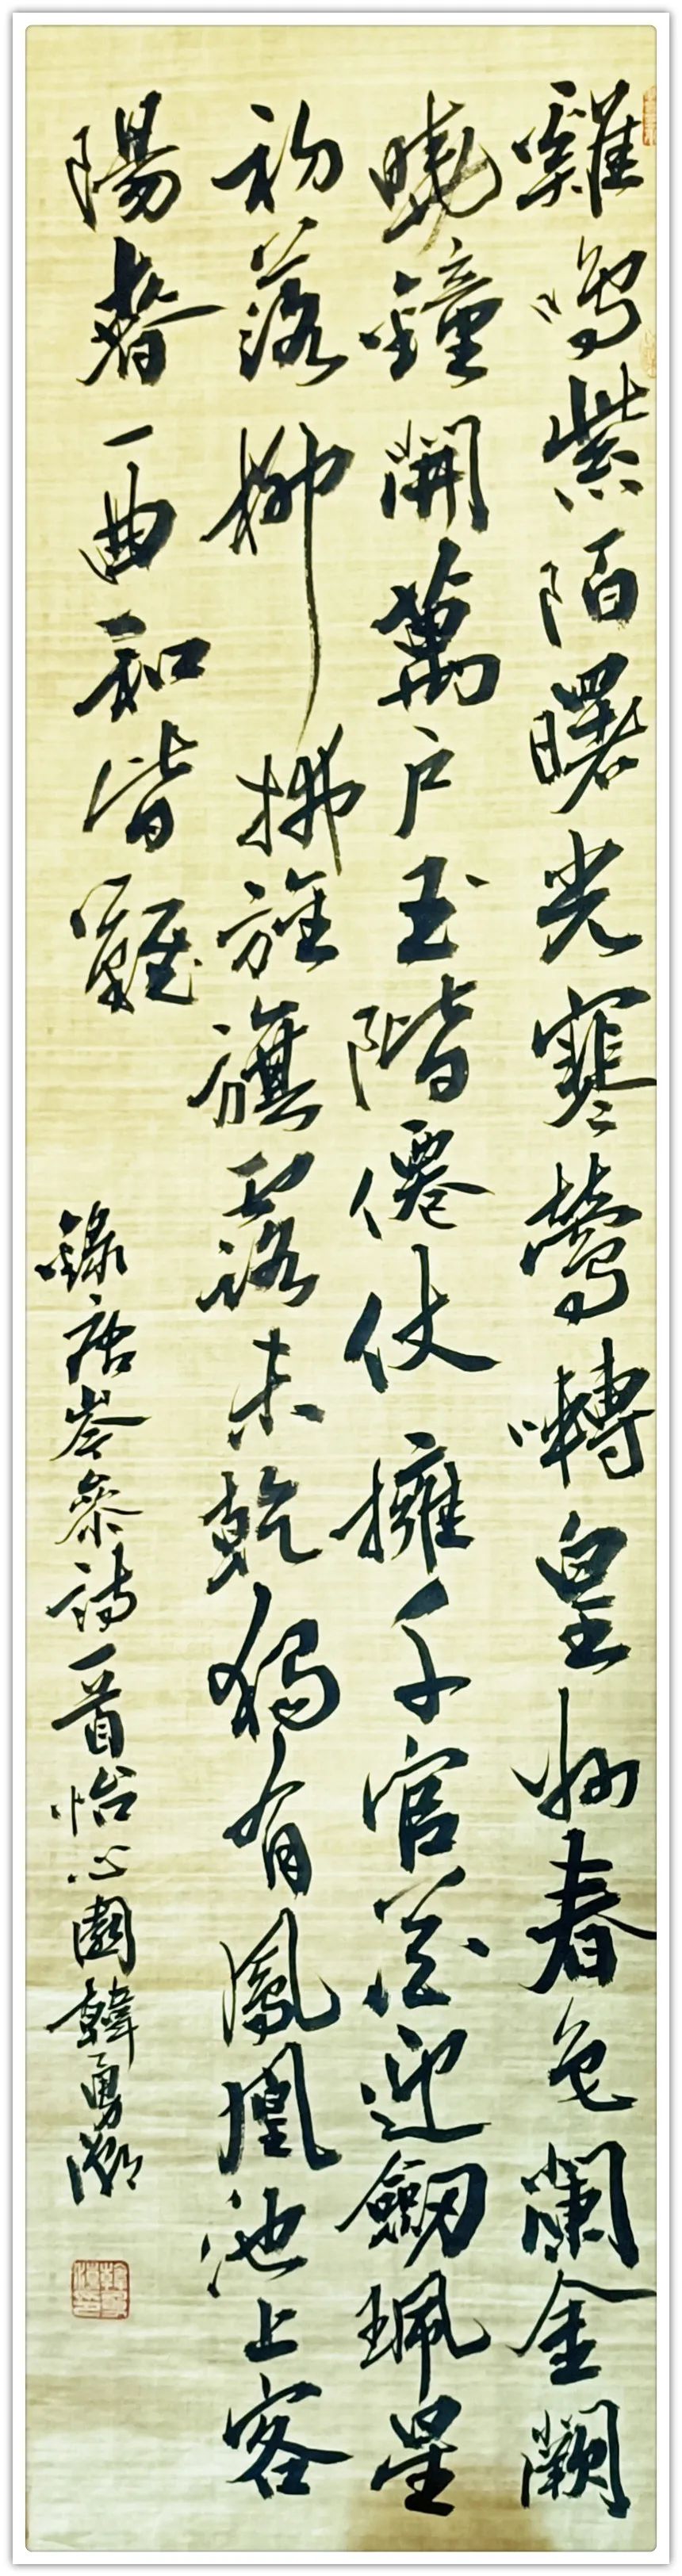 雞鳴紫陌曙光寒鶯囀皇州春色闌金闕
曉鐘開萬戶玉階僊仗擁千官花迎劔珮星
初落柳拂旌旗露未乾獨有鳳凰池上客
陽春一曲和皆難
錄唐岑參詩一首怡心園韓勇